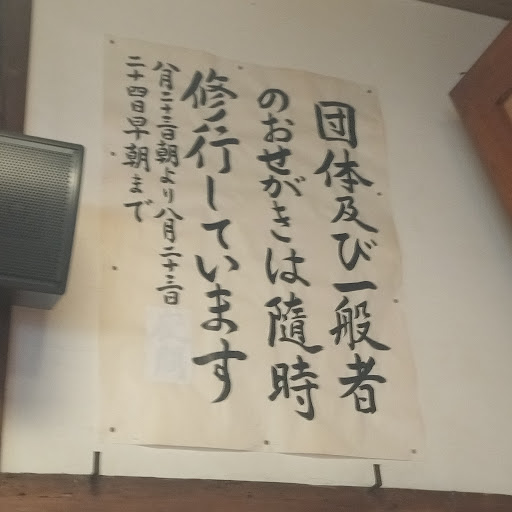 団体及び一般者
のおせがきは隨時
修行しています
八月二十三日朝より八月二十三日
二十四日早朝まで